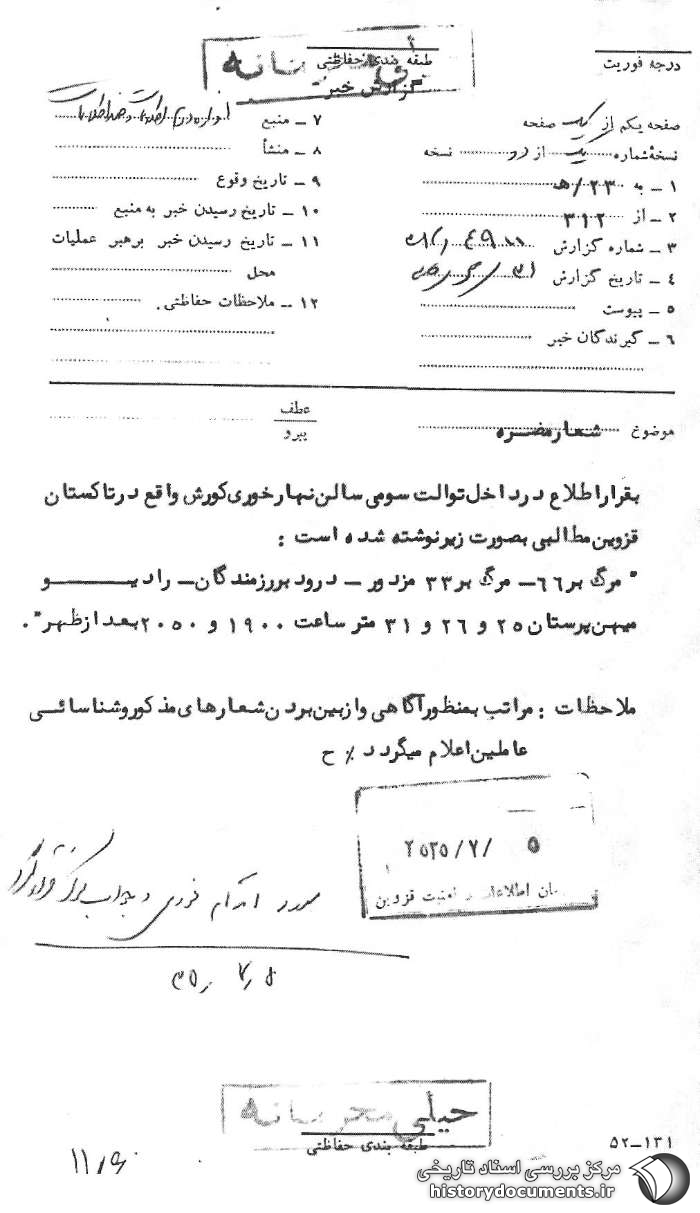 طبقه بندی حفاظتی
گزارش خبر
درجه فوریت
صفحه یکم از یک صفحه
نسخهٔ شماره یک از دو نسخه
۱ ـ به ۲۳/هـ
۲ ـ از ۳۱۲
۳ ـ شماره گزارش
۴ ـ تاریخ گزارش
۵ ـ پیوست
۶ ـ گیرندگان خبر
۷ ـ منبع
۸ ـ منشأ
۹ ـ تاریخ وقوع
۱۰ ـ تاریخ رسیدن خبر به منبع
۱۱ ـ تاریخ رسیدن خبر برهبر عملیات
محل
۱۲ ـ ملاحظات حفاظتی
موضوع شعار مضره
عطف
پیرو
بقرار اطلاع در داخل توالت سومی سالن نهارخوری کورش واقع در تاکستان
قزوین مطالبی بصورت زیر نوشته شده است :
" مرگ بر ۶۶ـ مرگ بر ۳۳ مزدور ـ درود بر رزمندگان ـ رادیو
میهن پرستان ۲۵ و ۲۶ و ۳۱ متر ساعت ۱۹۰۰ و ۲۰۵۰ بعد از ظهر" .
ملاحظات : مراتب بمنظور آگاهی و از بین بردن شعارهای مذکور و شناسائی
عاملین اعلام میگردد ٪ ح
۲۵۳۵/۷/ ۵
اطلاعات و امنیت قزوین
۳۵٫ ۷٫ ۵
خیلی محرمانه
طبقه بندی حفاظتی
۵۲ـ۱۳۱
مرکز بررسی اسناد تاریخی
historydocuments.ir